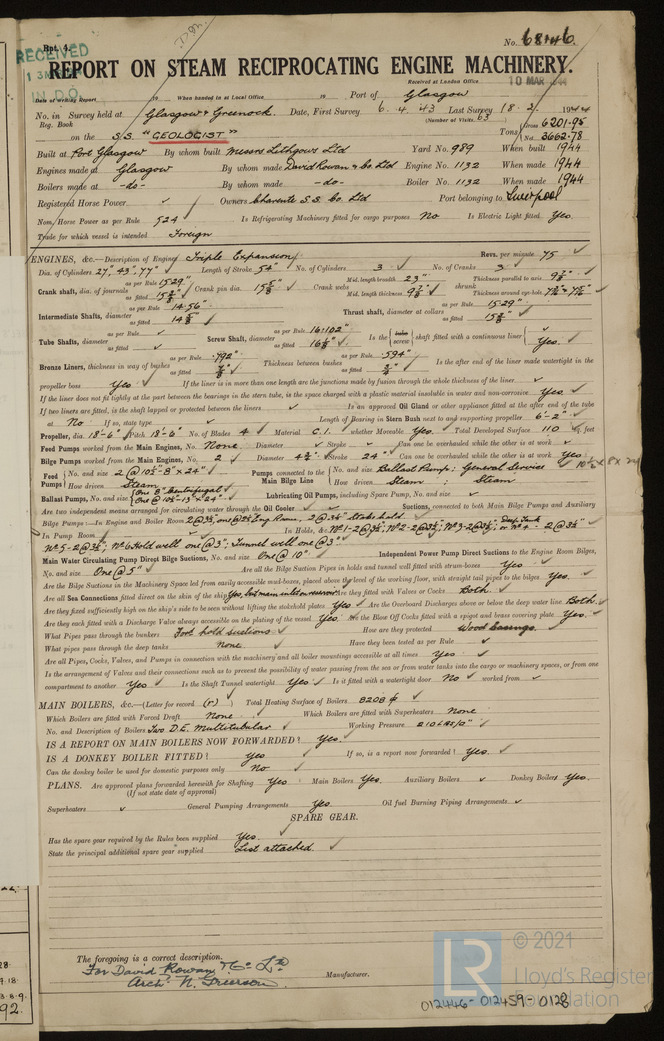 Rpt. 4.
RECEIVED
No. 68446
REPORT ON STEAM RECIPROCATING ENGINE MACHINERY.
Received at London Office 10 MAR
Date of writing Report 19 When handed in at Local Office 19 Port of Glasgow
No. in Survey held at Glasgow & Greenock Date, First Survey 6.4.43 Last Survey 18.2.1944
Reg. Book (Number of Visits 63)
on the S.S. "GEOLOGIST" Tons Gross 6201.95 Net 3662.78
Built at Port Glasgow By whom built Messrs Lithgows Ltd Yard No. 989 When built 1944
Engines made at Glasgow By whom made David Rowan & Co. Ltd Engine No. 1132 When made 1944
Boilers made at -do- By whom made -do- Boiler No. 1132 When made 1944
Registered Horse Power Owners Charente S.S. Co. Ltd Port belonging to Liverpool
Nom. Horse Power as per Rule 524 Is Refrigerating Machinery fitted for cargo purposes No Is Electric Light fitted Yes.
Trade for which vessel is intended Foreign
ENGINES, &c.—Description of Engines Triple Expansion Revs. per minute 75
Dia. of Cylinders 27" 43" 77" Length of Stroke 54" No. of Cylinders 3 No. of Cranks 3
Crank shaft, dia. of journals as per Rule 15.29" as fitted Crank pin dia. Crank webs Mid. length breadth 23" Thickness parallel to axis
Mid. length thickness shrunk Thickness around eye-hole
Intermediate Shafts, diameter as per Rule 14.56" as fitted Thrust shaft, diameter at collars as per Rule 15.29" as fitted
Tube Shafts, diameter as per Rule as fitted Screw Shaft, diameter as per Rule 16.102" as fitted Is the screw shaft fitted with a continuous liner Yes.
Bronze Liners, thickness in way of bushes as per Rule .792" as fitted Thickness between bushes as per Rule .594" as fitted Is the after end of the liner made watertight in the
propeller boss Yes If the liner is in more than one length are the junctions made by fusion through the whole thickness of the liner
If the liner does not fit tightly at the part between the bearings in the stern tube, is the space charged with a plastic material insoluble in water and non-corrosive Yes.
If two liners are fitted, is the shaft lapped or protected between the liners Is an approved Oil Gland or other appliance fitted at the after end of the tube
No If so, state type Length of Bearing in Stern Bush next to and supporting propeller 6'-2"
Propeller, dia. 18'-6" Pitch 18'-6" No. of Blades 4 Material C.I. whether Moveable Yes. Total Developed Surface 110 sq. feet
Feed Pumps worked from the Main Engines, No. None Diameter Stroke Can one be overhauled while the other is at work
Bilge Pumps worked from the Main Engines, No. 2 Diameter Stroke 24" Can one be overhauled while the other is at work Yes
Feed Pumps No. and size How driven Steam
Pumps connected to the Main Bilge Line No. and size Ballast Pump; General Service How driven Steam ; Steam
Ballast Pumps, No. and size One 8" Centrifugal Lubricating Oil Pumps, including Spare Pump, No. and size
Are two independent means arranged for circulating water through the Oil Cooler Suctions, connected to both Main Bilge Pumps and Auxiliary
Bilge Pumps:—In Engine and Boiler Room
In Pump Room In Holds, &c.
No 6 Hold well one @ 3"; Tunnel well one @ 3"
Main Water Circulating Pump Direct Bilge Suctions, No. and size One @ 10" Independent Power Pump Direct Suctions to the Engine Room Bilges,
No. and size One @ 5" Are all the Bilge Suction Pipes in holds and tunnel well fitted with strum-boxes Yes
Are the Bilge Suctions in the Machinery Space led from easily accessible mud-boxes, placed above the level of the working floor, with straight tail pipes to the bilges Yes.
Are all Sea Connections fitted direct on the skin of the ship Yes, but main inlet on reservoir Are they fitted with Valves or Cocks Both.
Are they fixed sufficiently high on the ship's side to be seen without lifting the stokehold plates Yes Are the Overboard Discharges above or below the deep water line Both.
Are they each fitted with a Discharge Valve always accessible on the plating of the vessel Yes. Are the Blow Off Cocks fitted with a spigot and brass covering plate Yes.
What Pipes pass through the bunkers Ford hold suctions How are they protected Wood casings.
What pipes pass through the deep tanks None Have they been tested as per Rule
Are all Pipes, Cocks, Valves, and Pumps in connection with the machinery and all boiler mountings accessible at all times Yes
Is the arrangement of Valves and their connections such as to prevent the possibility of water passing from the sea or from water tanks into the cargo or machinery spaces, or from one
compartment to another Yes Is the Shaft Tunnel watertight Yes Is it fitted with a watertight door No worked from
MAIN BOILERS, &c.—(Letter for record (r)) Total Heating Surface of Boilers 8208
Which Boilers are fitted with Forced Draft None Which Boilers are fitted with Superheaters None
No. and Description of Boilers Two D.E. Multitubular Working Pressure 210 LBS/□"
IS A REPORT ON MAIN BOILERS NOW FORWARDED? Yes.
IS A DONKEY BOILER FITTED? Yes If so, is a report now forwarded? Yes.
Can the donkey boiler be used for domestic purposes only No
PLANS. Are approved plans forwarded herewith for Shafting Yes Main Boilers Yes. Auxiliary Boilers Donkey Boilers Yes.
(If not state date of approval)
Superheaters General Pumping Arrangements Yes. Oil fuel Burning Piping Arrangements
SPARE GEAR.
Has the spare gear required by the Rules been supplied Yes.
State the principal additional spare gear supplied List attached.
The foregoing is a correct description.
For David Rowan & Co. Ltd
Arch. N. Grierson Manufacturer.
LR © 2021
Lloyd's Register
Foundation
012446-012459-0128